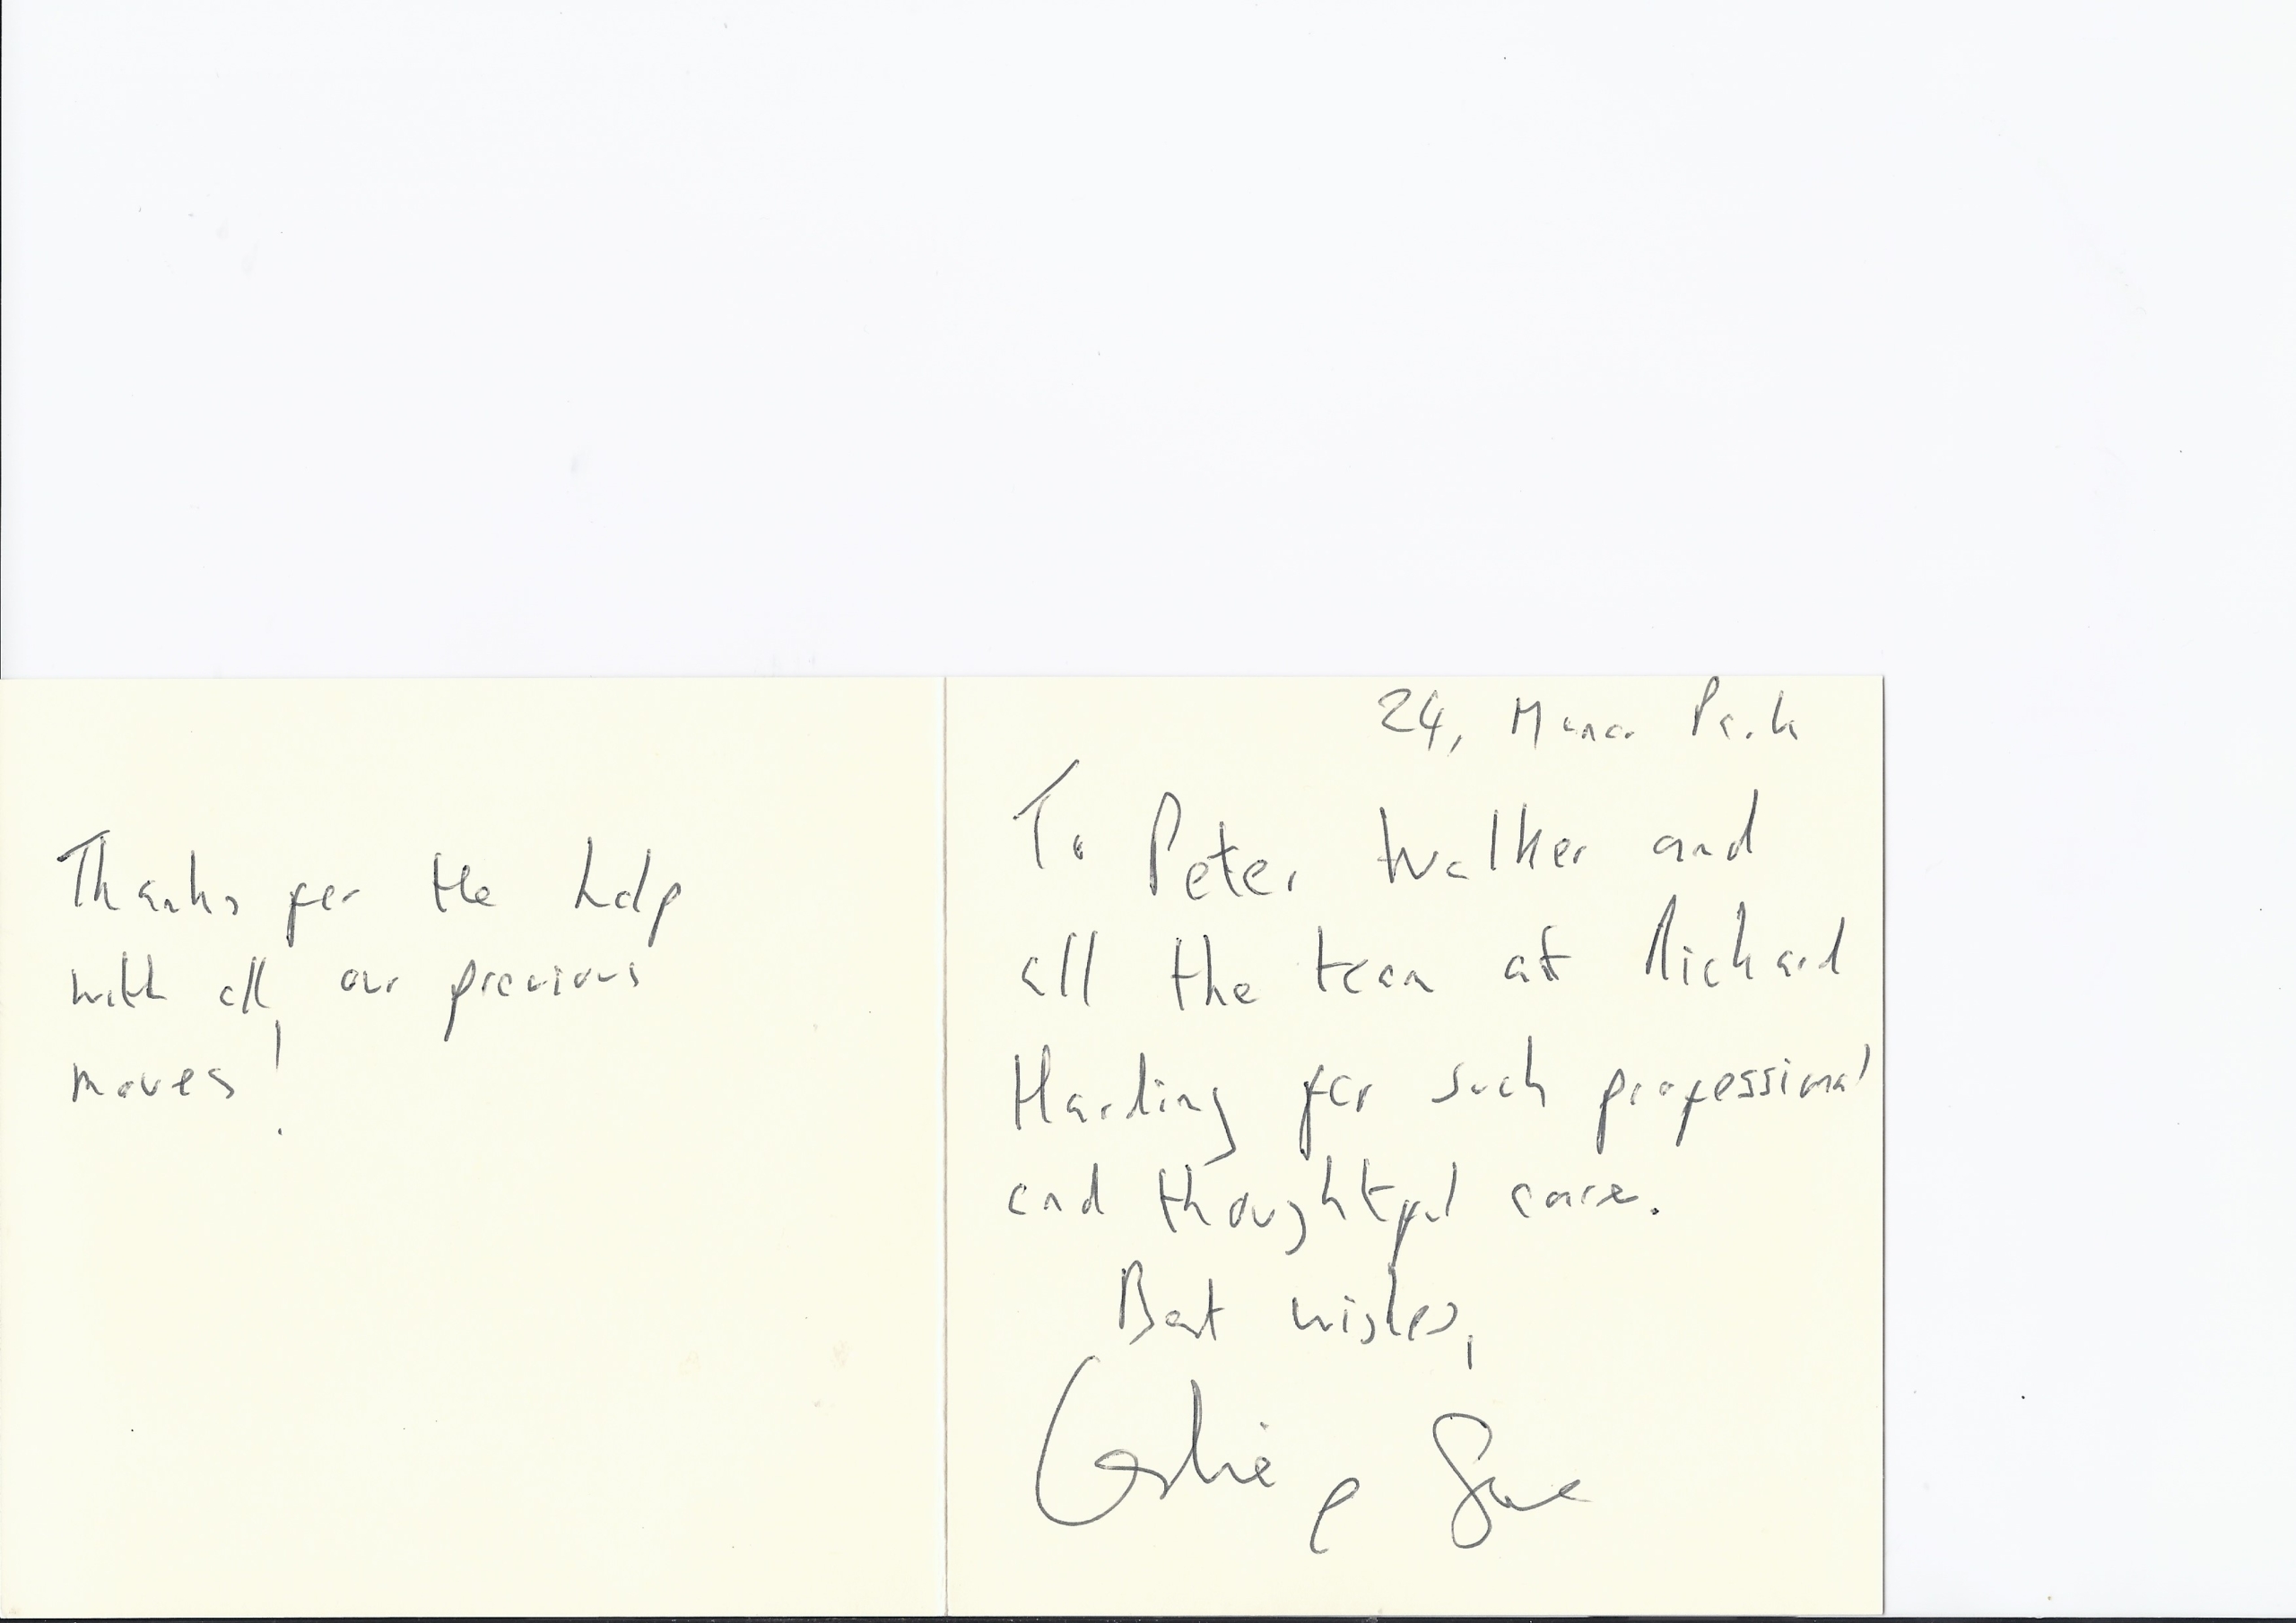 Thanks for the help
with all our previous
moves!
24, Manor Park
To Peter Walker and
all the team at Richard
Harding for such professional
and thoughtful care.
Best wishes,
Leslie & Sue